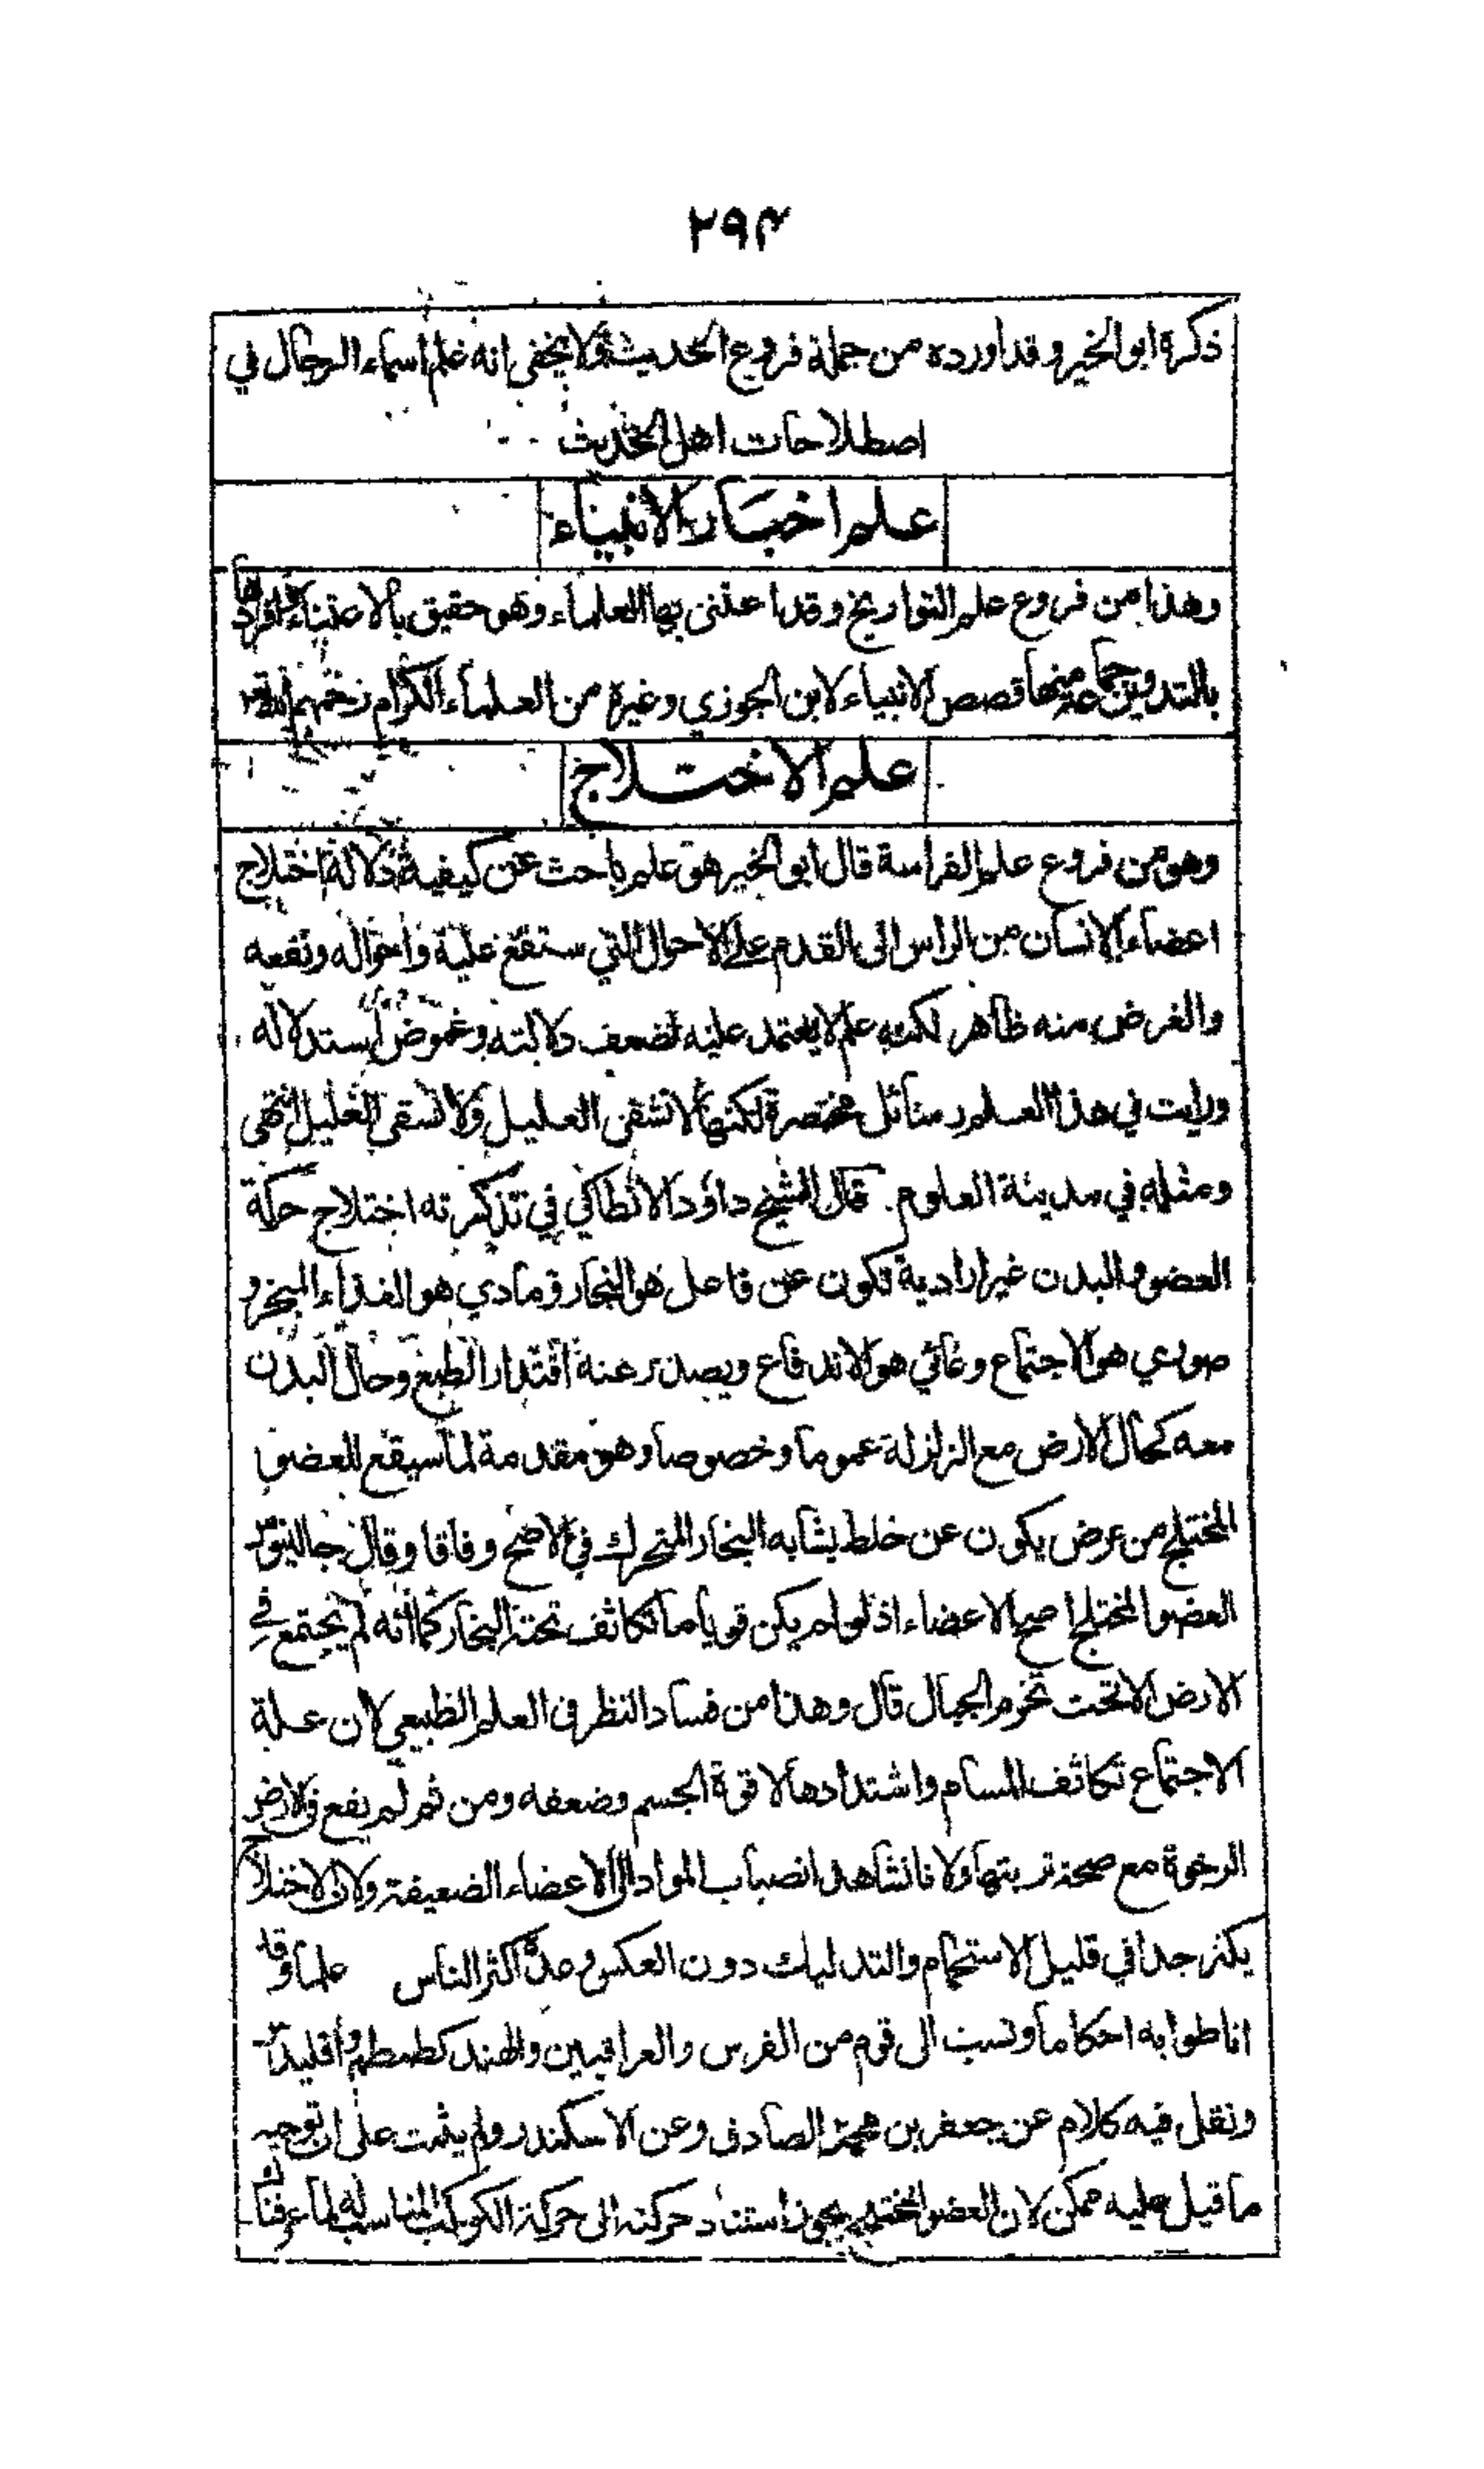 ۲۹۴
ذكره ابو الخير وقد اورده من جملة فروع الحديث ولا يخفى انه علم اسماء الرجال في
اصطلاحات اهل الحديث
علم اخبار الانبياء
وهذا من فروع علم التواريخ وقد اعتنى بها العلماء وهو حقيق بالاعتناء وافردها
بالتدوين جماعة منها قصص الانبياء لابن الجوزي وغيره من العلماء الكرام رحمهم الله تعالى
علم الاختلاج
وهو من فروع علم الفراسة قال ابو الخير هو علم باحث عن كيفية دلالة اختلاج
اعضاء الانسان من الراس الى القدم على الاحوال التي ستقع عليه واحواله ونفعه
والغرض منه ظاهر لكنه علم لا يعتمد عليه لضعف دلالته وغموض استدلاله
ورايت في هذا العلم رسائل مختصرة لكنها لا تشفى العليل ولا تسقى الغليل انتهى
ومثله في مدينة العلوم. قال الشيخ داؤد الانطاكي في تذكرته اختلاج حركة
العضو والبدن غير ارادية تكون عن فاعل هو البخار ومادي هو الغذاء المبخر و
صوري هو الاجتماع وغائي هو الاندفاع ويصدر عنه اقتدار الطبع وحال البدن
معه كحال الارض مع الزلزلة عموما وخصوصا وهو مقدمة لما سيقع للعضو
المختلج من مرض يكون عن خلط يشابه البخار المتحرك في الاصح وفاقا وقال جالينوس
العضو المختلج اصح الاعضاء اذ لو لم يكن قويا ما تكاثف تحته البخار كما انه لم يجتمع في
الارض الا تحت تخوم الجبال قال وهذا من فساد النظر في العلم الطبيعي لان علة
الاجتماع تكاثف المسام واشتدادها لا قوة الجسم وضعفه ومن ثم لم يقع في الارض
الرخوة مع صحة تربتها ولانا نشاهد انصباب المواد الى الاعضاء الضعيفة ولان الاختلاج
يكثر جدا في قليل الاستحمام والتدليك دون العكس وعد اكثر الناس علما وقد
اناطوا به احكاما ونسب الى قوم من الفرس والعراقيين والهند كطمطم واقليدس
ونقل فيه كلام عن جعفر بن محمد الصادق وعن الاسكندر ولم يثبت على ان توجيه
ما قيل عليه ممكن لان العضو المختلج يجوز استناد حركته الى حركة الكوكب المناسب له لما عرفناك